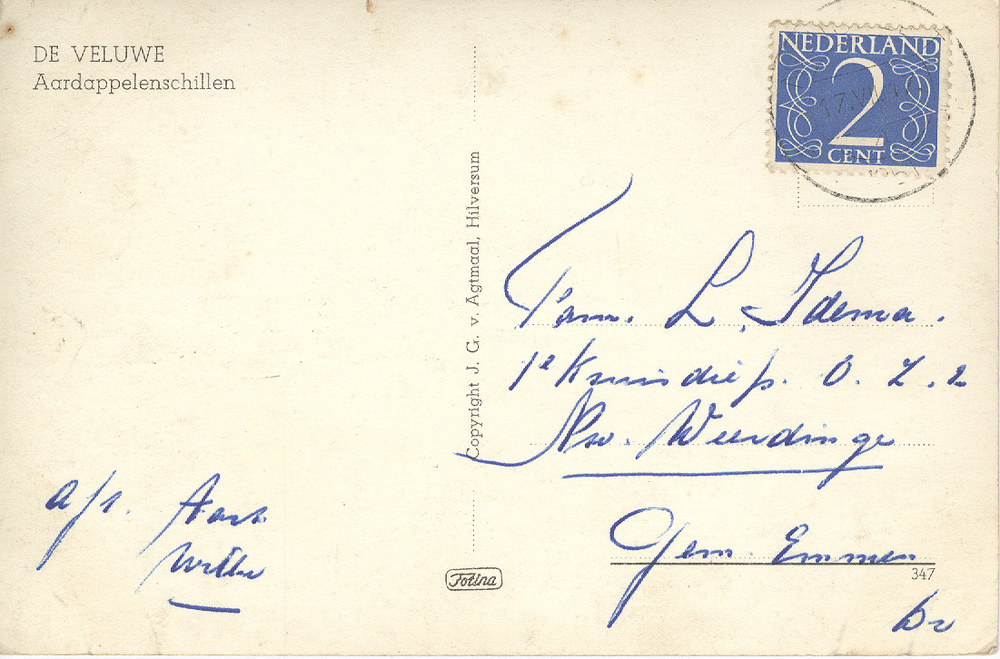 DE VELUWE
Aardappelenschillen
NEDERLAND
2
CENT
17.VII
Copyright J. G. v. Agtmaal, Hilversum
Fam. L. Idema.
1e Kruisdiep. O. Z. 2
Nw. Weerdinge
Gem. Emmen
Dr
a/s. Aart
Willie
Fotina
347